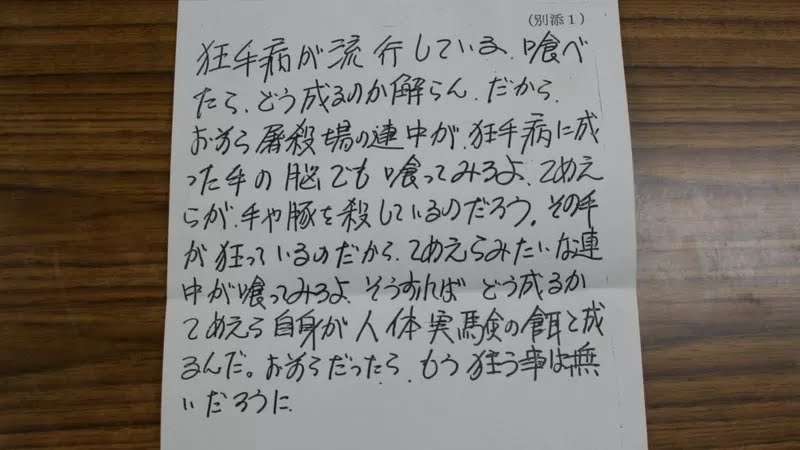 （別添１）
狂牛病が流行している、喰べ
たら、どう成るのか解らん、だから、
おまえら屠殺場の連中が、狂牛病に成
った牛の脳でも喰ってみろよ、てめえ
らが、牛や豚を殺しているのだろう。その牛
が狂っているのだから、てめえらみたいな連
中が喰ってみろよ、そうすれば どう成るか
てめえら自身が人体実験の餌と成
るんだ。おまえらだったら、もう狂う事は無
いだろうに